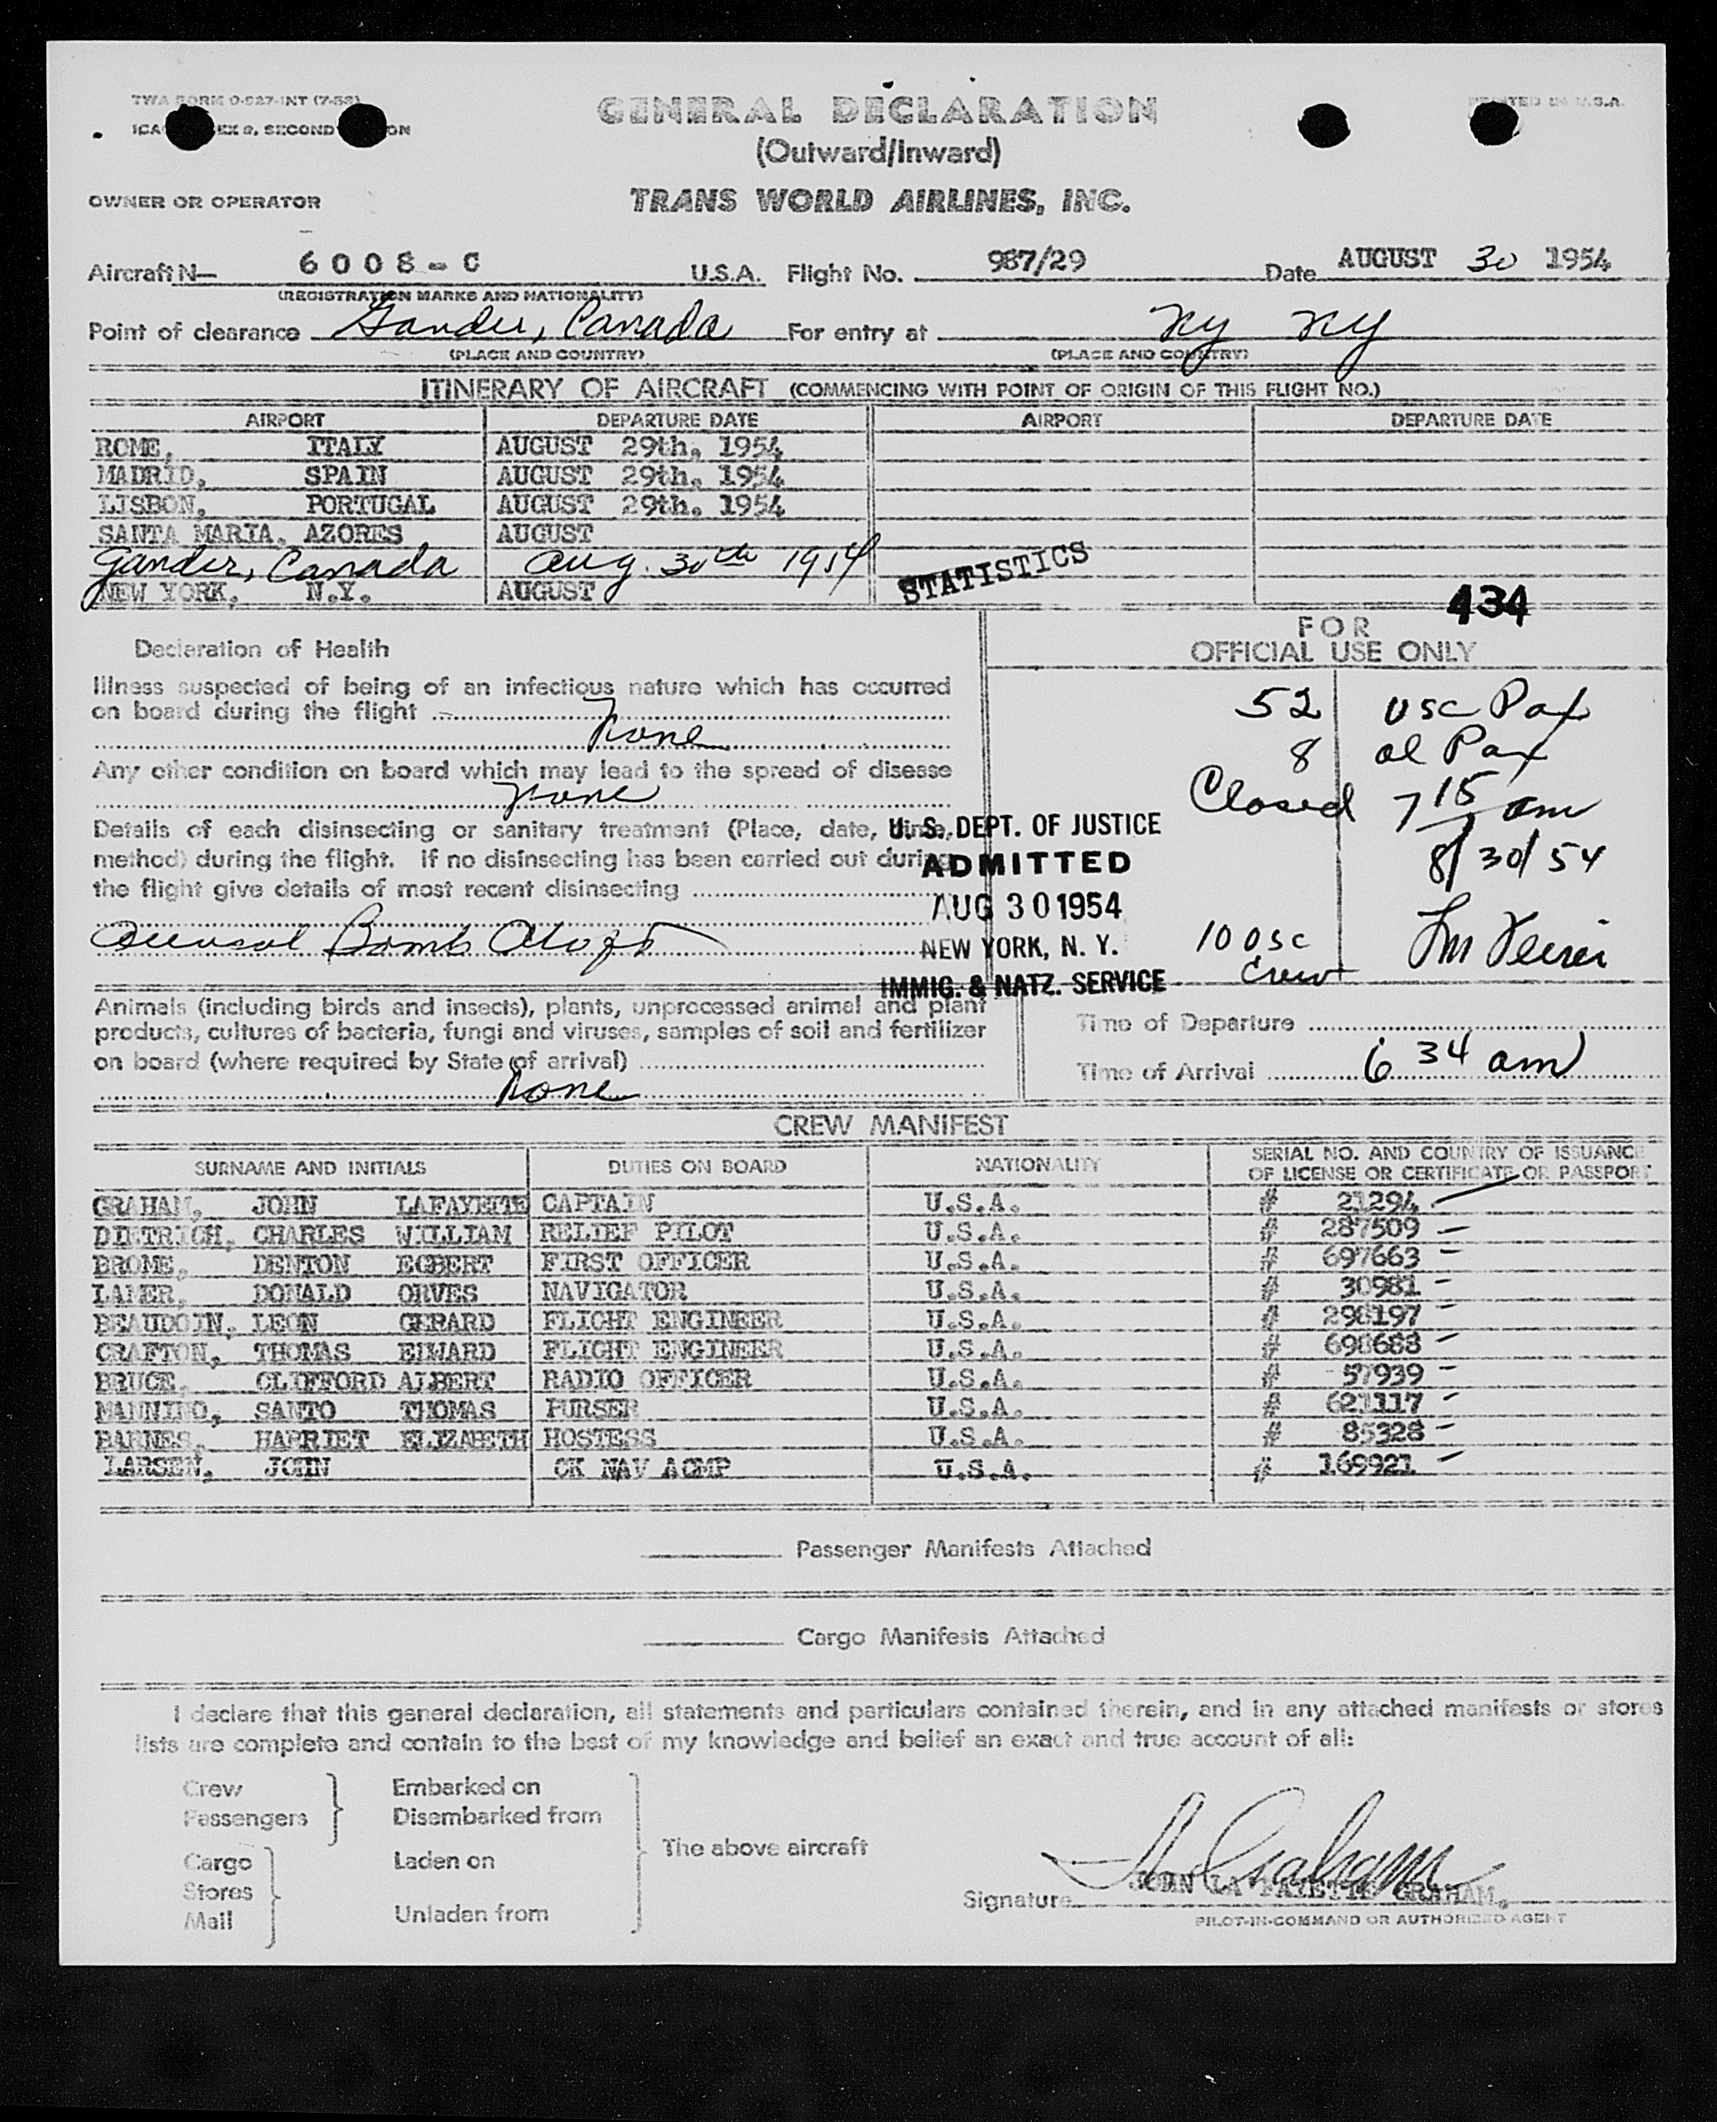 TWA FORM O-927-INT (7-53)
GENERAL DECLARATION
(Outward/Inward)
PRINTED IN U.S.A.
SECOND
OWNER OR OPERATOR
TRANS WORLD AIRLINES, INC.
Aircraft N— 6008-C U.S.A. Flight No. 987/29 Date AUGUST 30 1954
(REGISTRATION MARKS AND NATIONALITY)
Point of clearance Gander, Canada For entry at NY NY
(PLACE AND COUNTRY) (PLACE AND COUNTRY)
ITINERARY OF AIRCRAFT (COMMENCING WITH POINT OF ORIGIN OF THIS FLIGHT NO.)
AIRPORT DEPARTURE DATE AIRPORT DEPARTURE DATE
ROME, ITALY AUGUST 29th, 1954
MADRID, SPAIN AUGUST 29th, 1954
LISBON, PORTUGAL AUGUST 29th, 1954
SANTA MARIA, AZORES AUGUST
Gander, Canada Aug. 30th 1954
NEW YORK, N.Y. AUGUST
STATISTICS
434
Declaration of Health
Illness suspected of being of an infectious nature which has occurred
on board during the flight
None
Any other condition on board which may lead to the spread of disease
None
Details of each disinsecting or sanitary treatment (Place, date, time,
method) during the flight. If no disinsecting has been carried out during
the flight give details of most recent disinsecting
Aerosol Bomb Aloft
Animals (including birds and insects), plants, unprocessed animal and plant
products, cultures of bacteria, fungi and viruses, samples of soil and fertilizer
on board (where required by State of arrival)
None
FOR
OFFICIAL USE ONLY
52 USC Pax
8 al Pax
Closed 7 15 am
8/30/54
U. S. DEPT. OF JUSTICE
ADMITTED
AUG 30 1954
NEW YORK, N. Y.
IMMIG. & NATZ. SERVICE
10 USC
Crew
Time of Departure
Time of Arrival 6 34 am
CREW MANIFEST
SURNAME AND INITIALS DUTIES ON BOARD NATIONALITY SERIAL NO. AND COUNTRY OF ISSUANCE
OF LICENSE OR CERTIFICATE OR PASSPORT
GRAHAM, JOHN LAFAYETTE CAPTAIN U.S.A. # 21294
DIETRICH, CHARLES WILLIAM RELIEF PILOT U.S.A. # 287509
BROME, DENTON EGBERT FIRST OFFICER U.S.A. # 697663
LAMER, DONALD ORVES NAVIGATOR U.S.A. # 30981
BEAUDOIN, LEON GERARD FLIGHT ENGINEER U.S.A. # 298197
CRAFTON, THOMAS EDWARD FLIGHT ENGINEER U.S.A. # 698688
BRUCE, CLIFFORD ALBERT RADIO OFFICER U.S.A. # 57939
MANNINO, SANTO THOMAS PURSER U.S.A. # 621117
BARNES, HARRIET ELIZABETH HOSTESS U.S.A. # 85328
LARSEN, JOHN CK NAV ACMP U.S.A. # 169921
Passenger Manifests Attached
Cargo Manifests Attached
I declare that this general declaration, all statements and particulars contained therein, and in any attached manifests or stores
lists are complete and contain to the best of my knowledge and belief an exact and true account of all:
Crew
Passengers
Embarked on
Disembarked from
Cargo
Stores
Mail
Laden on
Unladen from
The above aircraft
Graham
Signature JOHN LA FAYETTE GRAHAM,
PILOT-IN-COMMAND OR AUTHORIZED AGENT